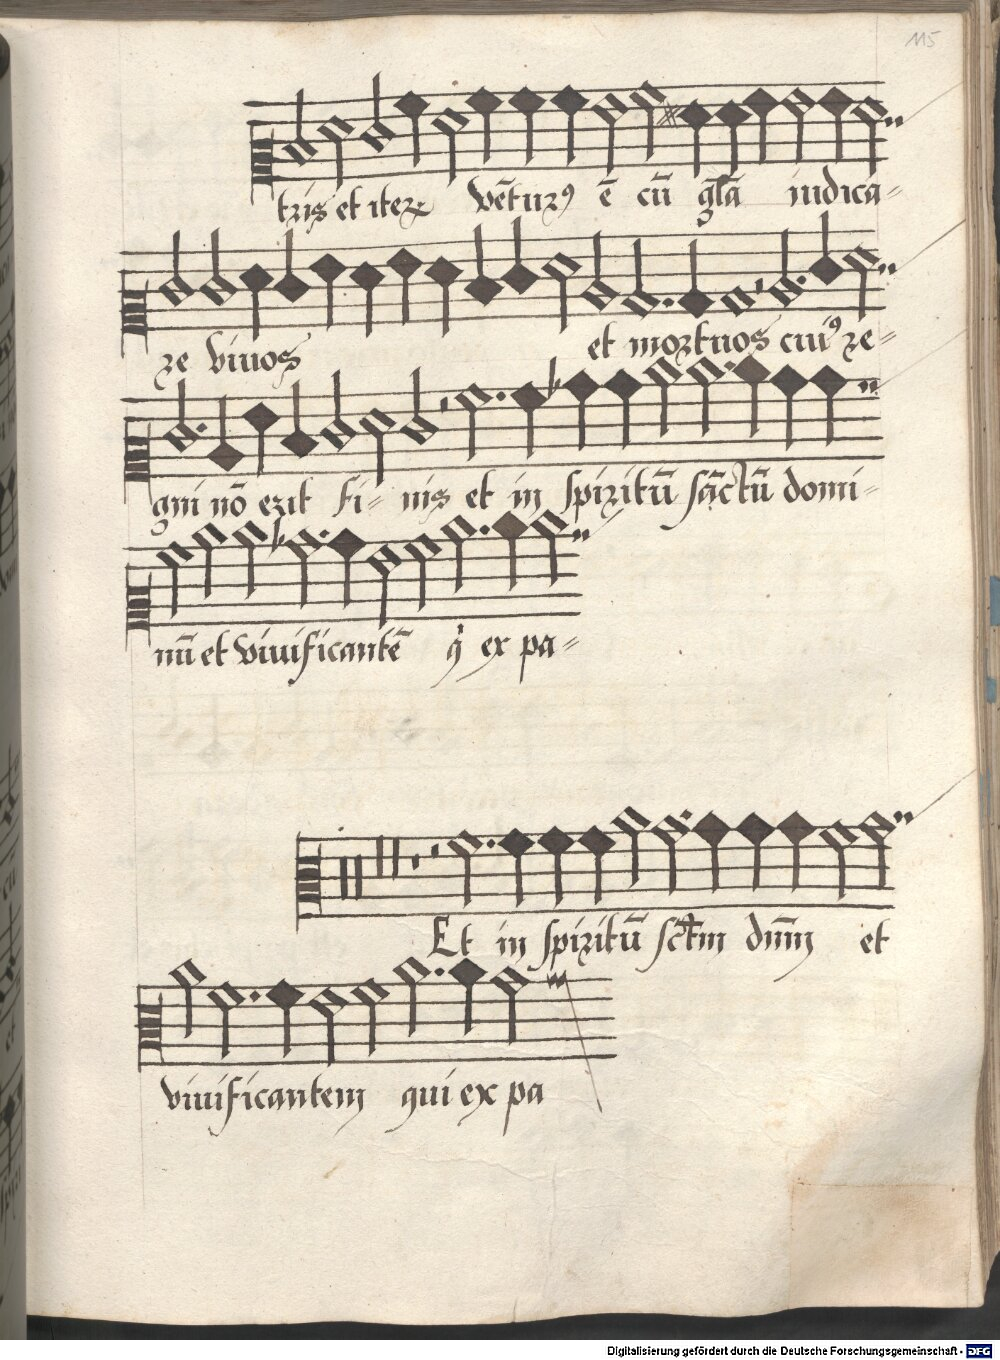 115
tris et iterꝝ vētur9 ē cū gl̄a iudica-
re vivos et mortuos cui9 re-
gni nō erit fi- nis et in spiritū sāctū domi-
nū et vivificantē q̇ ex pa-
Et in spiritū sc̄tm dn̄m et
vivificantem qui ex pa
Digitalisierung gefördert durch die Deutsche Forschungsgemeinschaft - DFG